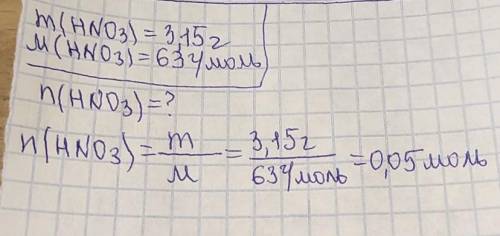 m(HNO3)=3,15г
M(HNO3)=63г/моль
n(HNO3)=?
n(HNO3)=m/M=3,15г/63г/моль=0,05моль